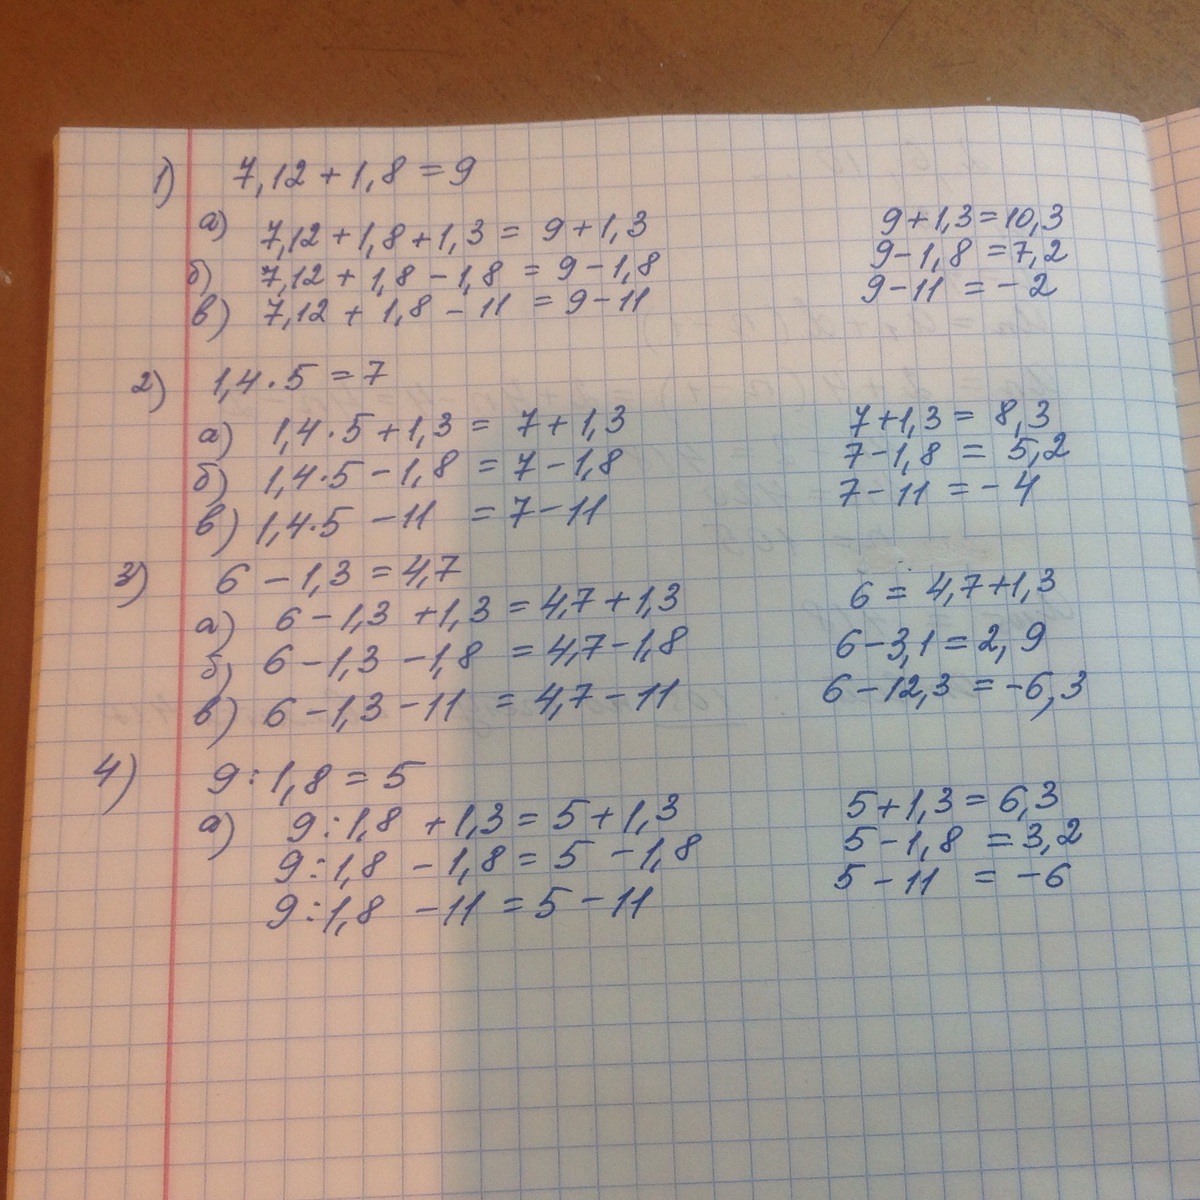 1) 7,12 + 1,8 = 9
а) 7,12 + 1,8 + 1,3 = 9 + 1,3 9 + 1,3 = 10,3
б) 7,12 + 1,8 - 1,8 = 9 - 1,8 9 - 1,8 = 7,2
в) 7,12 + 1,8 - 11 = 9 - 11 9 - 11 = - 2
2) 1,4 · 5 = 7
а) 1,4 · 5 + 1,3 = 7 + 1,3 7 + 1,3 = 8,3
б) 1,4 · 5 - 1,8 = 7 - 1,8 7 - 1,8 = 5,2
в) 1,4 · 5 - 11 = 7 - 11 7 - 11 = - 4
3) 6 - 1,3 = 4,7
а) 6 - 1,3 + 1,3 = 4,7 + 1,3 6 = 4,7 + 1,3
б) 6 - 1,3 - 1,8 = 4,7 - 1,8 6 - 3,1 = 2,9
в) 6 - 1,3 - 11 = 4,7 - 11 6 - 12,3 = - 6,3
4) 9 : 1,8 = 5
а) 9 : 1,8 + 1,3 = 5 + 1,3 5 + 1,3 = 6,3
9 : 1,8 - 1,8 = 5 - 1,8 5 - 1,8 = 3,2
9 : 1,8 - 11 = 5 - 11 5 - 11 = - 6